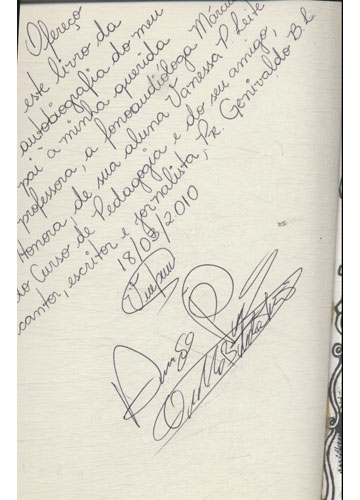 Ofereço
este livro da
autobiografia do meu
pai à minha querida
professora, a fonoaudióloga Márcia
Honora, de sua aluna Vanessa P. Leite
do Curso de Pedagogia e do seu amigo,
cantor, escritor e jornalista, Pr. Genivaldo B. L.
18/08/2010